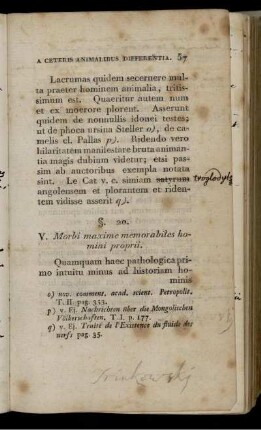 A CETERIS ANIMALIBUS DIFFERENTIA. 57
Lacrumas quidem secernere mul-
ta praeter hominem animalia; tritis-
simum est. Quaeritur autem num
et ex moerore plorent. Asserunt
quidem de nonnullis idonei testes;
ut de phoca ursina Steller o), de ca-
melis cl. Pallas p). Ridendo vero
hilaritatem manifestare bruta animan-
tia magis dubium videtur; etsi pas-
sim ab auctoribus exempla notata
sint. Le Cat v. c. simiam satyrum troglodyt
angolensem et plorantem et riden-
tem vidisse asserit q).
§. 20.
V. Morbi maxime memorabiles ho-
mini proprii.
Quamquam haec pathologica pri-
mo intuitu minus ad historiam ho-
minis
o) nov. comment. acad. scient. Petropolit.
T. II. pag. 353.
p) v. Ej. Nachrichten über die Mongolischen
Völkerschaften, T. I. p. 177.
q) v. Ej. Traité de l'Existence du fluide des
nerfs pag. 35.